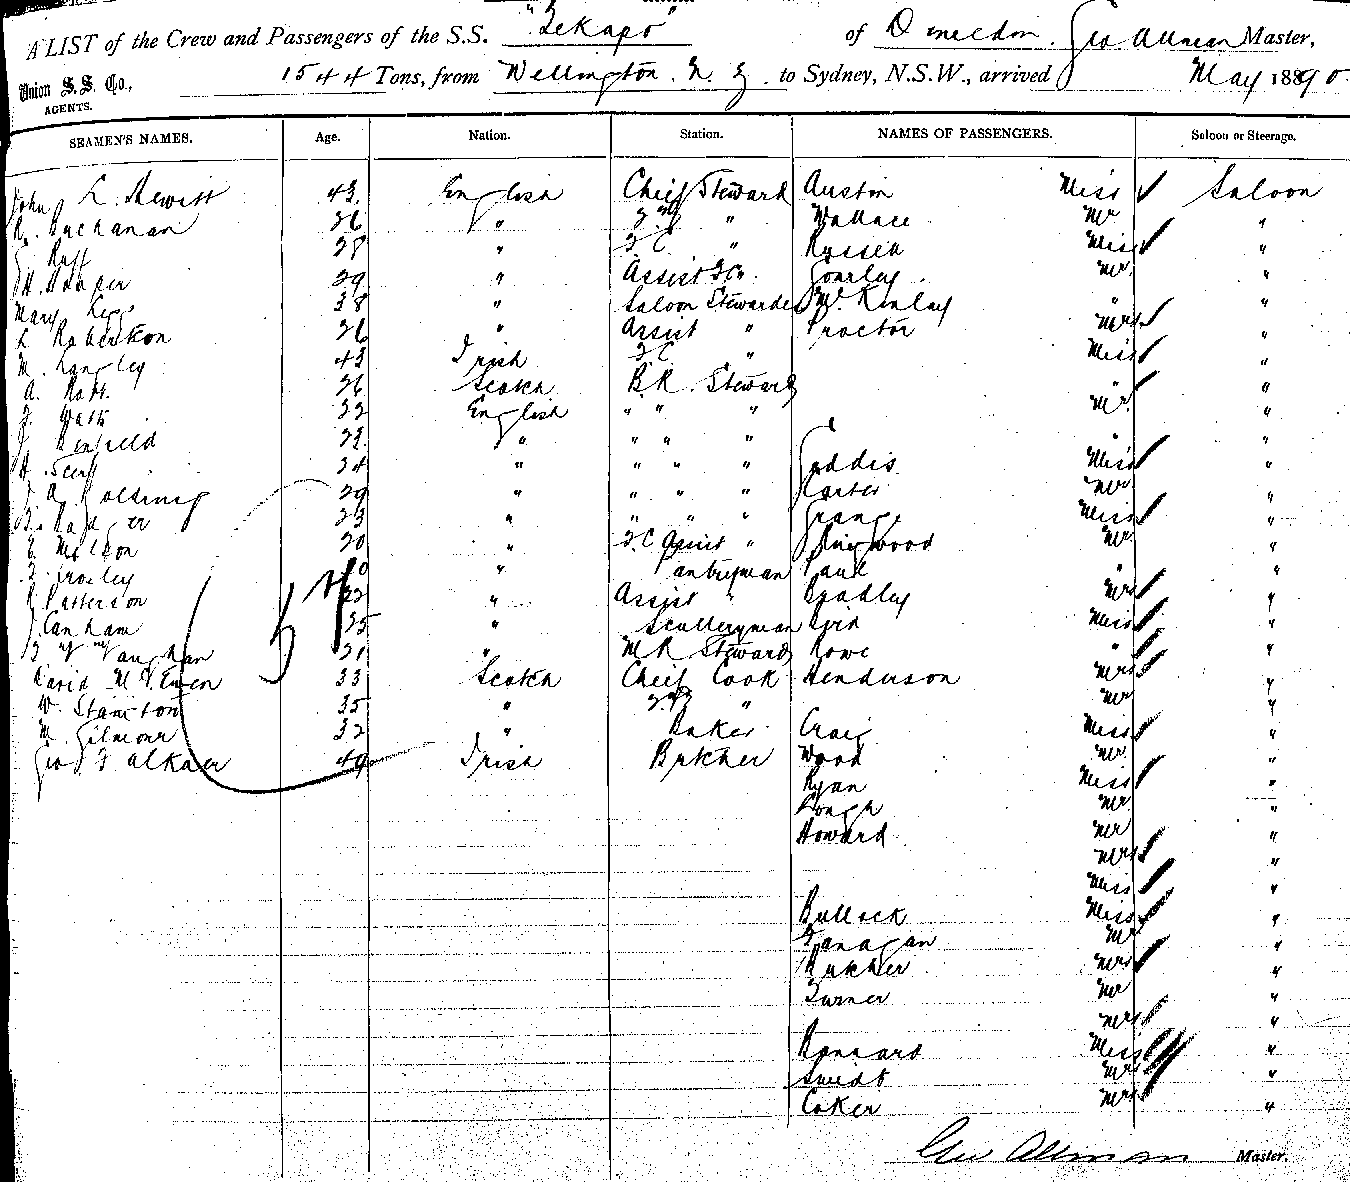 "Tekapo"
A LIST of the Crew and Passengers of the S.S. of Dunedin. Geo Allman Master,
Union S.S. Co., AGENTS. 1544 Tons, from Wellington. N. Z. to Sydney, N.S.W., arrived May 1890.
SEAMEN'S NAMES. Age. Nation. Station. NAMES OF PASSENGERS. Saloon or Steerage.
John L. Hewitt 43. English Chief Steward Austin Miss Saloon
R. Buchanan 26 " " Wallace Mr "
27 " " Russell Miss "
29 " Assist Gourley Mr. "
Mary 38 " Saloon Stewardess Mc Kinlay " "
L Robertson 26 " Assist " Proctor Mrs "
M. Langley 43 Irish " Miss "
A. 26 Scotch B.R. Steward " "
22 English " " " Mr. "
" " " " " "
H. 24 " " " " Gaddis Miss "
A. Golding 29 " " " " Carter Mr "
23 " " " " Grange Miss "
20 " Assist " Mr "
" Pantryman Paul " "
Patterson 22 " Assist " Bradley Mrs "
J. Canham 25 " Sculleryman Reid Miss "
Vaughan 21 " M R Steward Rowe " "
David McEwen 33 Scotch Chief Cook Henderson Mrs "
W. Stanton 35 " " Mr "
M. Gilmour 32 " Baker Craig Miss "
Geo 49 Irish Butcher Wood Mr "
5th
Ryan Miss "
Lough Mr "
Howard Mr "
Mrs "
Miss "
Bullock Miss "
Fanagan Mr "
Butcher Mrs "
Turner Mr "
Mrs "
Miss "
Mrs "
Coker Mrs "
Geo Allman Master.